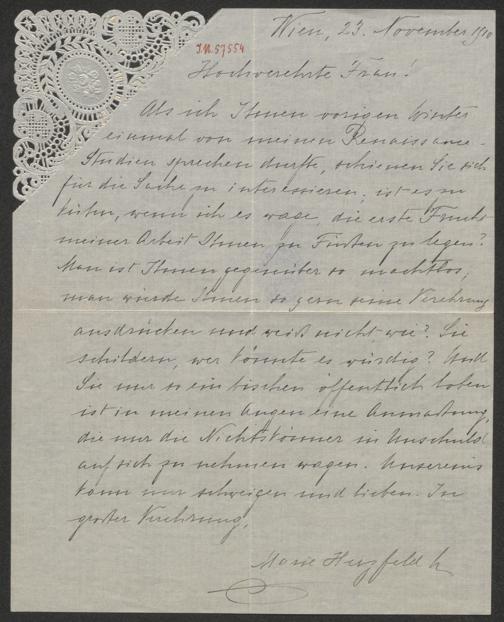 Wien, 23. November 1910
I.N. 57554
Hochverehrte Frau!
Als ich Ihnen vorigen Winter
einmal von meinen Renaissance-
Studien sprechen durfte, schienen Sie sich
für die Sache zu interessieren; ist es zu
kühn, wenn ich es wage, die erste Frucht
meiner Arbeit Ihnen zu Füßen zu legen?
Man ist Ihnen gegenüber so machtlos;
man würde Ihnen so gern seine Verehrung
ausdrücken und weiß nicht, wie? Sie
schildern, wer könnte es würdig? Und
Sie nur so ein bischen öffentlich loben
ist in meinen Augen eine Anmaßung,
die nur die Nichtskönner in Unschuld
auf sich zu nehmen wagen. Unsereins
kann nur schweigen und lieben. In
großer Verehrung,
Marie Herzfeld